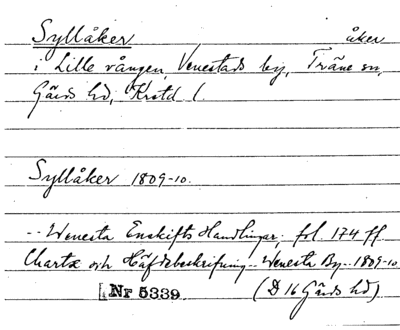 Syllåker åker
i Lille vången, Venestads by, Träne sn,
Gärds hd, Krstd l.
Syllåker 1809-10.
-- Wenesta Enskifts Handlingar, fol. 174 ff
Charta och Häfdebeskrifning -- Wenesta By -- 1809-10
Nr 5339 (D 16 Gärds hd)